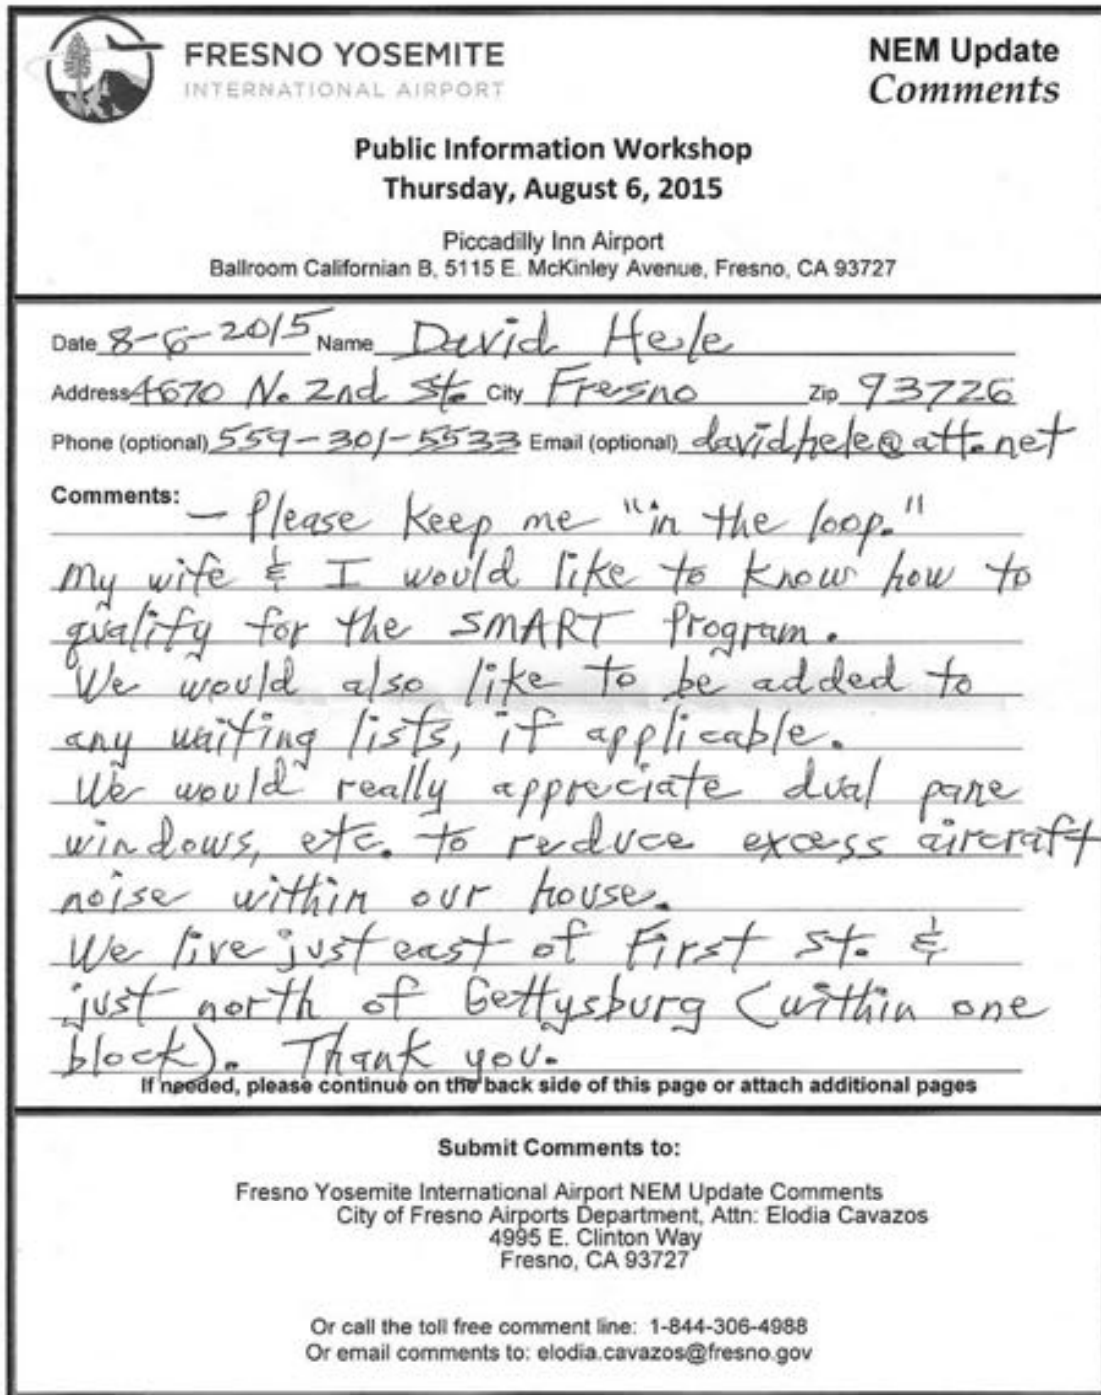 FRESNO YOSEMITE
INTERNATIONAL AIRPORT
NEM Update
Comments
Public Information Workshop
Thursday, August 6, 2015
Piccadilly Inn Airport
Ballroom Californian B, 5115 E. McKinley Avenue, Fresno, CA 93727
Date 8-6-2015 Name David Hele
Address 4670 N. 2nd St. City Fresno Zip 93726
Phone (optional) 559-301-5533 Email (optional) davidhele@att.net
Comments: — Please keep me "in the loop."
My wife & I would like to know how to
qualify for the SMART Program.
We would also like to be added to
any waiting lists, if applicable.
We would really appreciate dual pane
windows, etc. to reduce excess aircraft
noise within our house.
We live just east of First St. &
just north of Gettysburg (within one
block). Thank you.
If needed, please continue on the back side of this page or attach additional pages
Submit Comments to:
Fresno Yosemite International Airport NEM Update Comments
City of Fresno Airports Department, Attn: Elodia Cavazos
4995 E. Clinton Way
Fresno, CA 93727
Or call the toll free comment line: 1-844-306-4988
Or email comments to: elodia.cavazos@fresno.gov